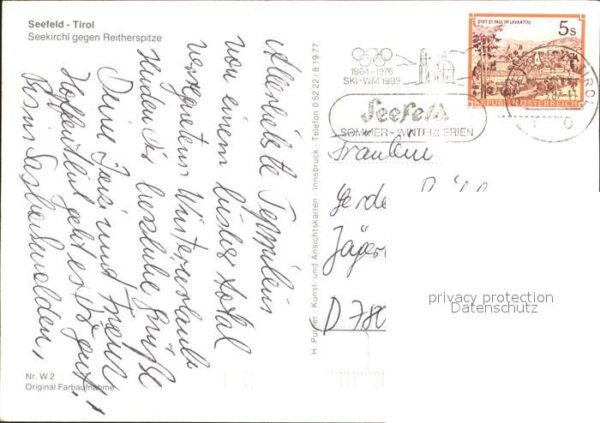 Seefeld - Tirol
Seekirchl gegen Reitherspitze
Allerliebste
von einem lustig total
verregneten Winterurlaub
senden Dir herzliche Grüße
Deine und
Hoffentlich geht es Dir gut!
Bis in
Nr. W 2
Original Farbaufnahme
H. Purger - Kunst- und Ansichtskarten - Innsbruck - Telefon 0 52 22 / 8 19 77
1964-1976
SKI-WM 1985
Seefeld
SOMMER - WINTER FERIEN
TIROL
STIFT ST. PAUL IM LAVANTTAL
5 S
REPUBLIK ÖSTERREICH
Fräulein
Gerda
Jäger
D 780
privacy protection
Datenschutz